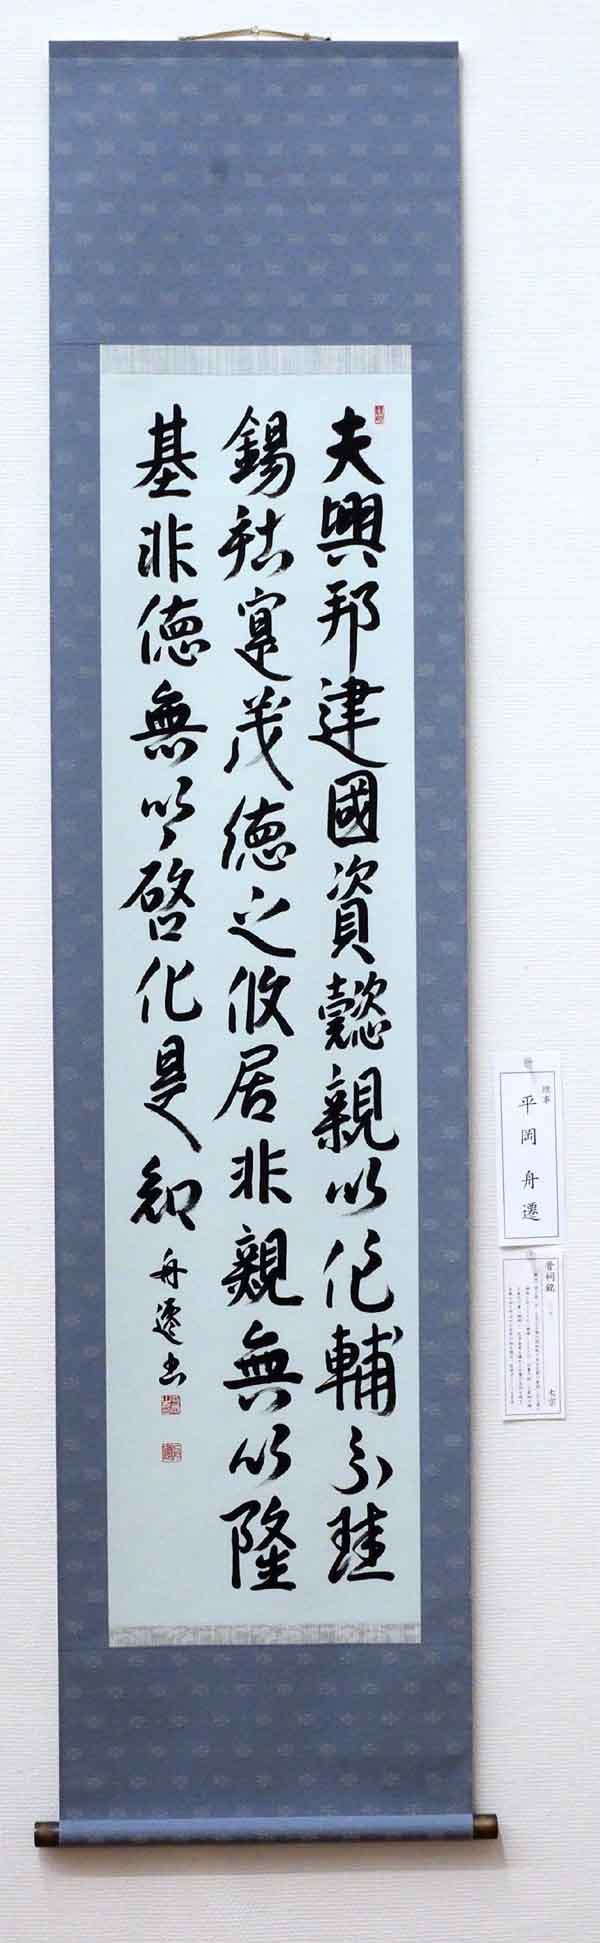 夫興邦建國資懿親以作輔分珪
錫社寔茂徳之攸居非親無以隆
基非徳無以啓化是知
舟遷書
理事
平岡舟遷
晋祠銘
太宗